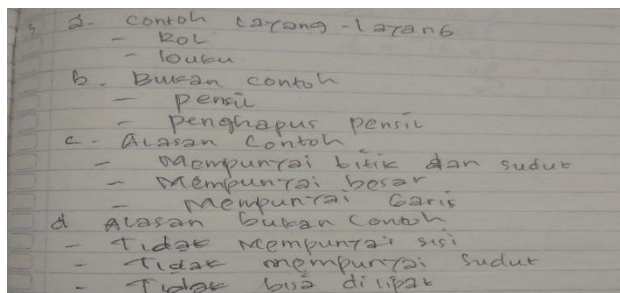 3 a. Contoh Layang-layang
- Rol
- buku
b. Bukan contoh
- pensil
- penghapus pensil
c. Alasan Contoh
- Mempunyai titik dan sudut
- Mempunyai besar
- Mempunyai Garis
d Alasan bukan Contoh
- Tidak Mempunyai sisi
- Tidak mempunyai Sudut
- Tidak bisa dilipat